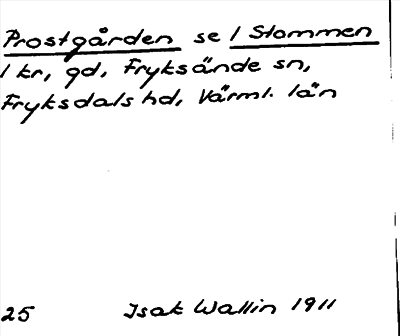 Prostgården se 1 Stommen
1 kr, gd, Fryksände sn,
Fryksdals hd, Värml. län
25 Isak Wallin 1911